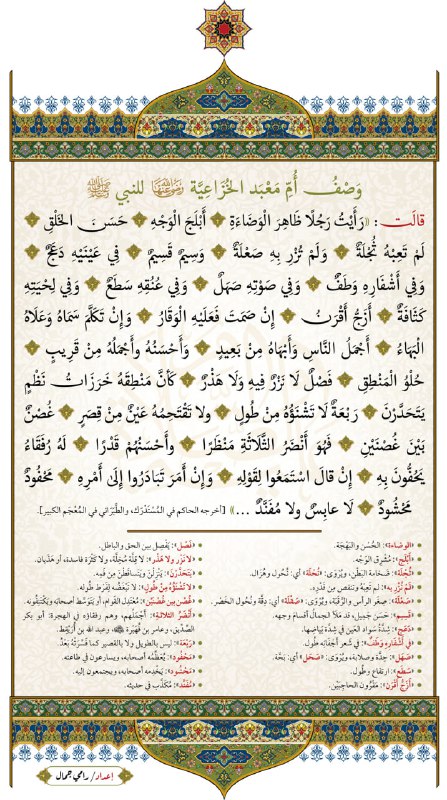 وَصْفُ أُمِّ مَعْبَد الخُزَاعِيَّة رضي الله عنها للنبي ﷺ
قالَت: «رَأَيْتُ رَجُلًا ظَاهِرَ الوَضَاءَةِ أَبْلَجَ الوَجْهِ حَسَنَ الخَلْقِ
لَمْ تَعِبْهُ ثُجْلَةٌ وَلَمْ تُزْرِ بِهِ صَعْلَةٌ وَسِيمٌ قَسِيمٌ فِي عَيْنَيْهِ دَعَجٌ
وَفِي أَشْفَارِهِ وَطَفٌ وَفِي صَوْتِهِ صَهَلٌ وَفِي عُنُقِهِ سَطَعٌ وَفِي لِحْيَتِهِ
كَثَافَةٌ أَزَجُّ أَقْرَنُ إِنْ صَمَتَ فَعَلَيْهِ الوَقَارُ وَإِنْ تَكَلَّمَ سَمَاهُ وَعَلَاهُ
البَهَاءُ أَجْمَلُ النَّاسِ وَأَبْهَاهُ مِنْ بَعِيدٍ وَأَحْسَنُهُ وَأَجْمَلُهُ مِنْ قَرِيبٍ
حُلْوُ المَنْطِقِ فَصْلٌ لَا نَزْرٌ فِيهِ وَلَا هَذْرٌ كَأَنَّ مَنْطِقَهُ خَرَزَاتُ نَظْمٍ
يَتَحَدَّرْنَ رَبْعَةٌ لَا تَشْنَؤُهُ مِنْ طُولٍ ولا تَقْتَحِمُهُ عَيْنٌ مِنْ قِصَرٍ غُصْنٌ
بَيْنَ غُصْنَيْنِ فَهُوَ أَنْضَرُ الثَّلَاثَةِ مَنْظَرًا وأَحْسَنُهُمْ قَدْرًا لَهُ رُفَقَاءُ
يَحُفُّونَ بِهِ إِنْ قَالَ اسْتَمَعُوا لِقَوْلِهِ وَإِنْ أَمَرَ تَبَادَرُوا إِلَى أَمْرِهِ مَحْفُودٌ
مَحْشُودٌ لَا عابِسٌ ولا مُفَنَّدٌ ...» [أخرجه الحاكم في المُسْتَدْرَك، والطَّبَراني في المُعْجَم الكبير].
«الوَضاءة»: الحُسْن والبَهْجَة.
«أَبْلَج»: مُشْرِق الوَجْه.
«ثُجْلَة»: ضَخامة البَطْن، ويُرْوَى: «نُحْلَة» أي: نُحُول وهُزَال.
«لَمْ تُزْرِ بِهِ»: لم تَعِبهُ وتنتقص مِن قَدْرِه.
«صَعْلَة»: صِغَر الرأس والرَّقَبَة، ويُرْوَى: «صُقْلَة» أي: دِقَّة ونُحول الخَصْر.
«قَسِيم»: حَسَن جَميل، قد مَلأ الجمالُ أقسامَ وجهه.
«دَعَج»: شِدَّة سَواد العَين في شِدَّة بَيَاضِها.
«فِي أَشْفَارِهِ وَطَفٌ»: في شَعر أجفانِه طُول.
«صَهَل»: حِدَّة وصَلابه، ويُرْوَى: «صَحَل» أي: بَحَّة.
«سَطَع»: ارتفاع وطُول.
«أَزَجّ أَقْرَن»: مَقْرُون الحاجِبَيْن.
«فَصْل»: يَفْصِل بين الحق والباطل.
«لا نَزْر ولا هَذْر»: لا قِلَّة مُخِلَّة، ولا كَثْرَة فاسدة، أو هَذَيان.
«يَتَحَدَّرْنَ»: يَنْزِلْنَ ويَتَساقَطْنَ مِن فَمِه.
«لا تَشْنَؤُهُ مِنْ طُولٍ»: لا تَبْغَضُه لِفَرط طُوله.
«غُصْن بين غُصْنَيْن»: مُعتدِل القَوام، أو يَتَوسَّط أصحابَه ويَكتَنِفونَه.
«أَنْضَر الثلاثةِ»: أَجْمَلُهم، وهم رفقاؤه في الهِجرة: أبو بكر
الصِّدِّيق، وعامر بن فُهَيْرَة، وعبد الله بن أُرَيْقِط.
«رَبْعَة»: ليس بالطويل ولا بالقصير كما فَسَّرَتْهُ بَعْدُ.
«مَحْفُود»: يُعَظِّمُه أصحابُه، ويُسارعون في طاعتِه.
«مَحْشُود»: يَخْدمه أصحابُه، ويجتمعون إليه.
«مُفَنَّد»: مُكَذَّب في حديثِه.
إعداد/ رامي جمال